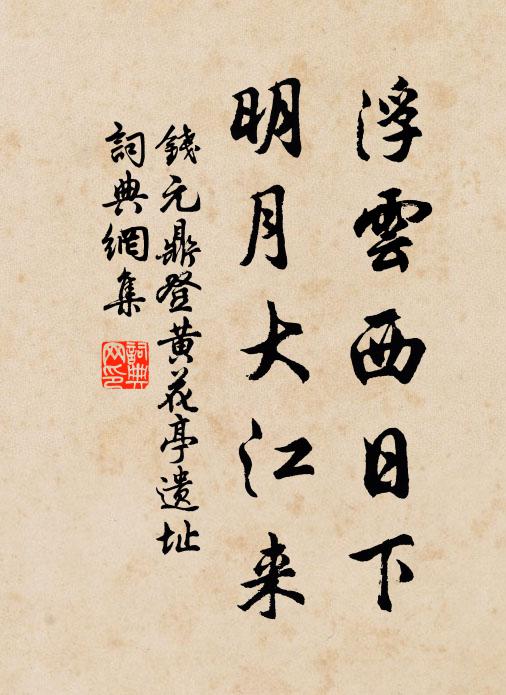 浮雲西日下
明月大江来
錢元鼎登黄花亭遗址
詞典網集
詞典网印